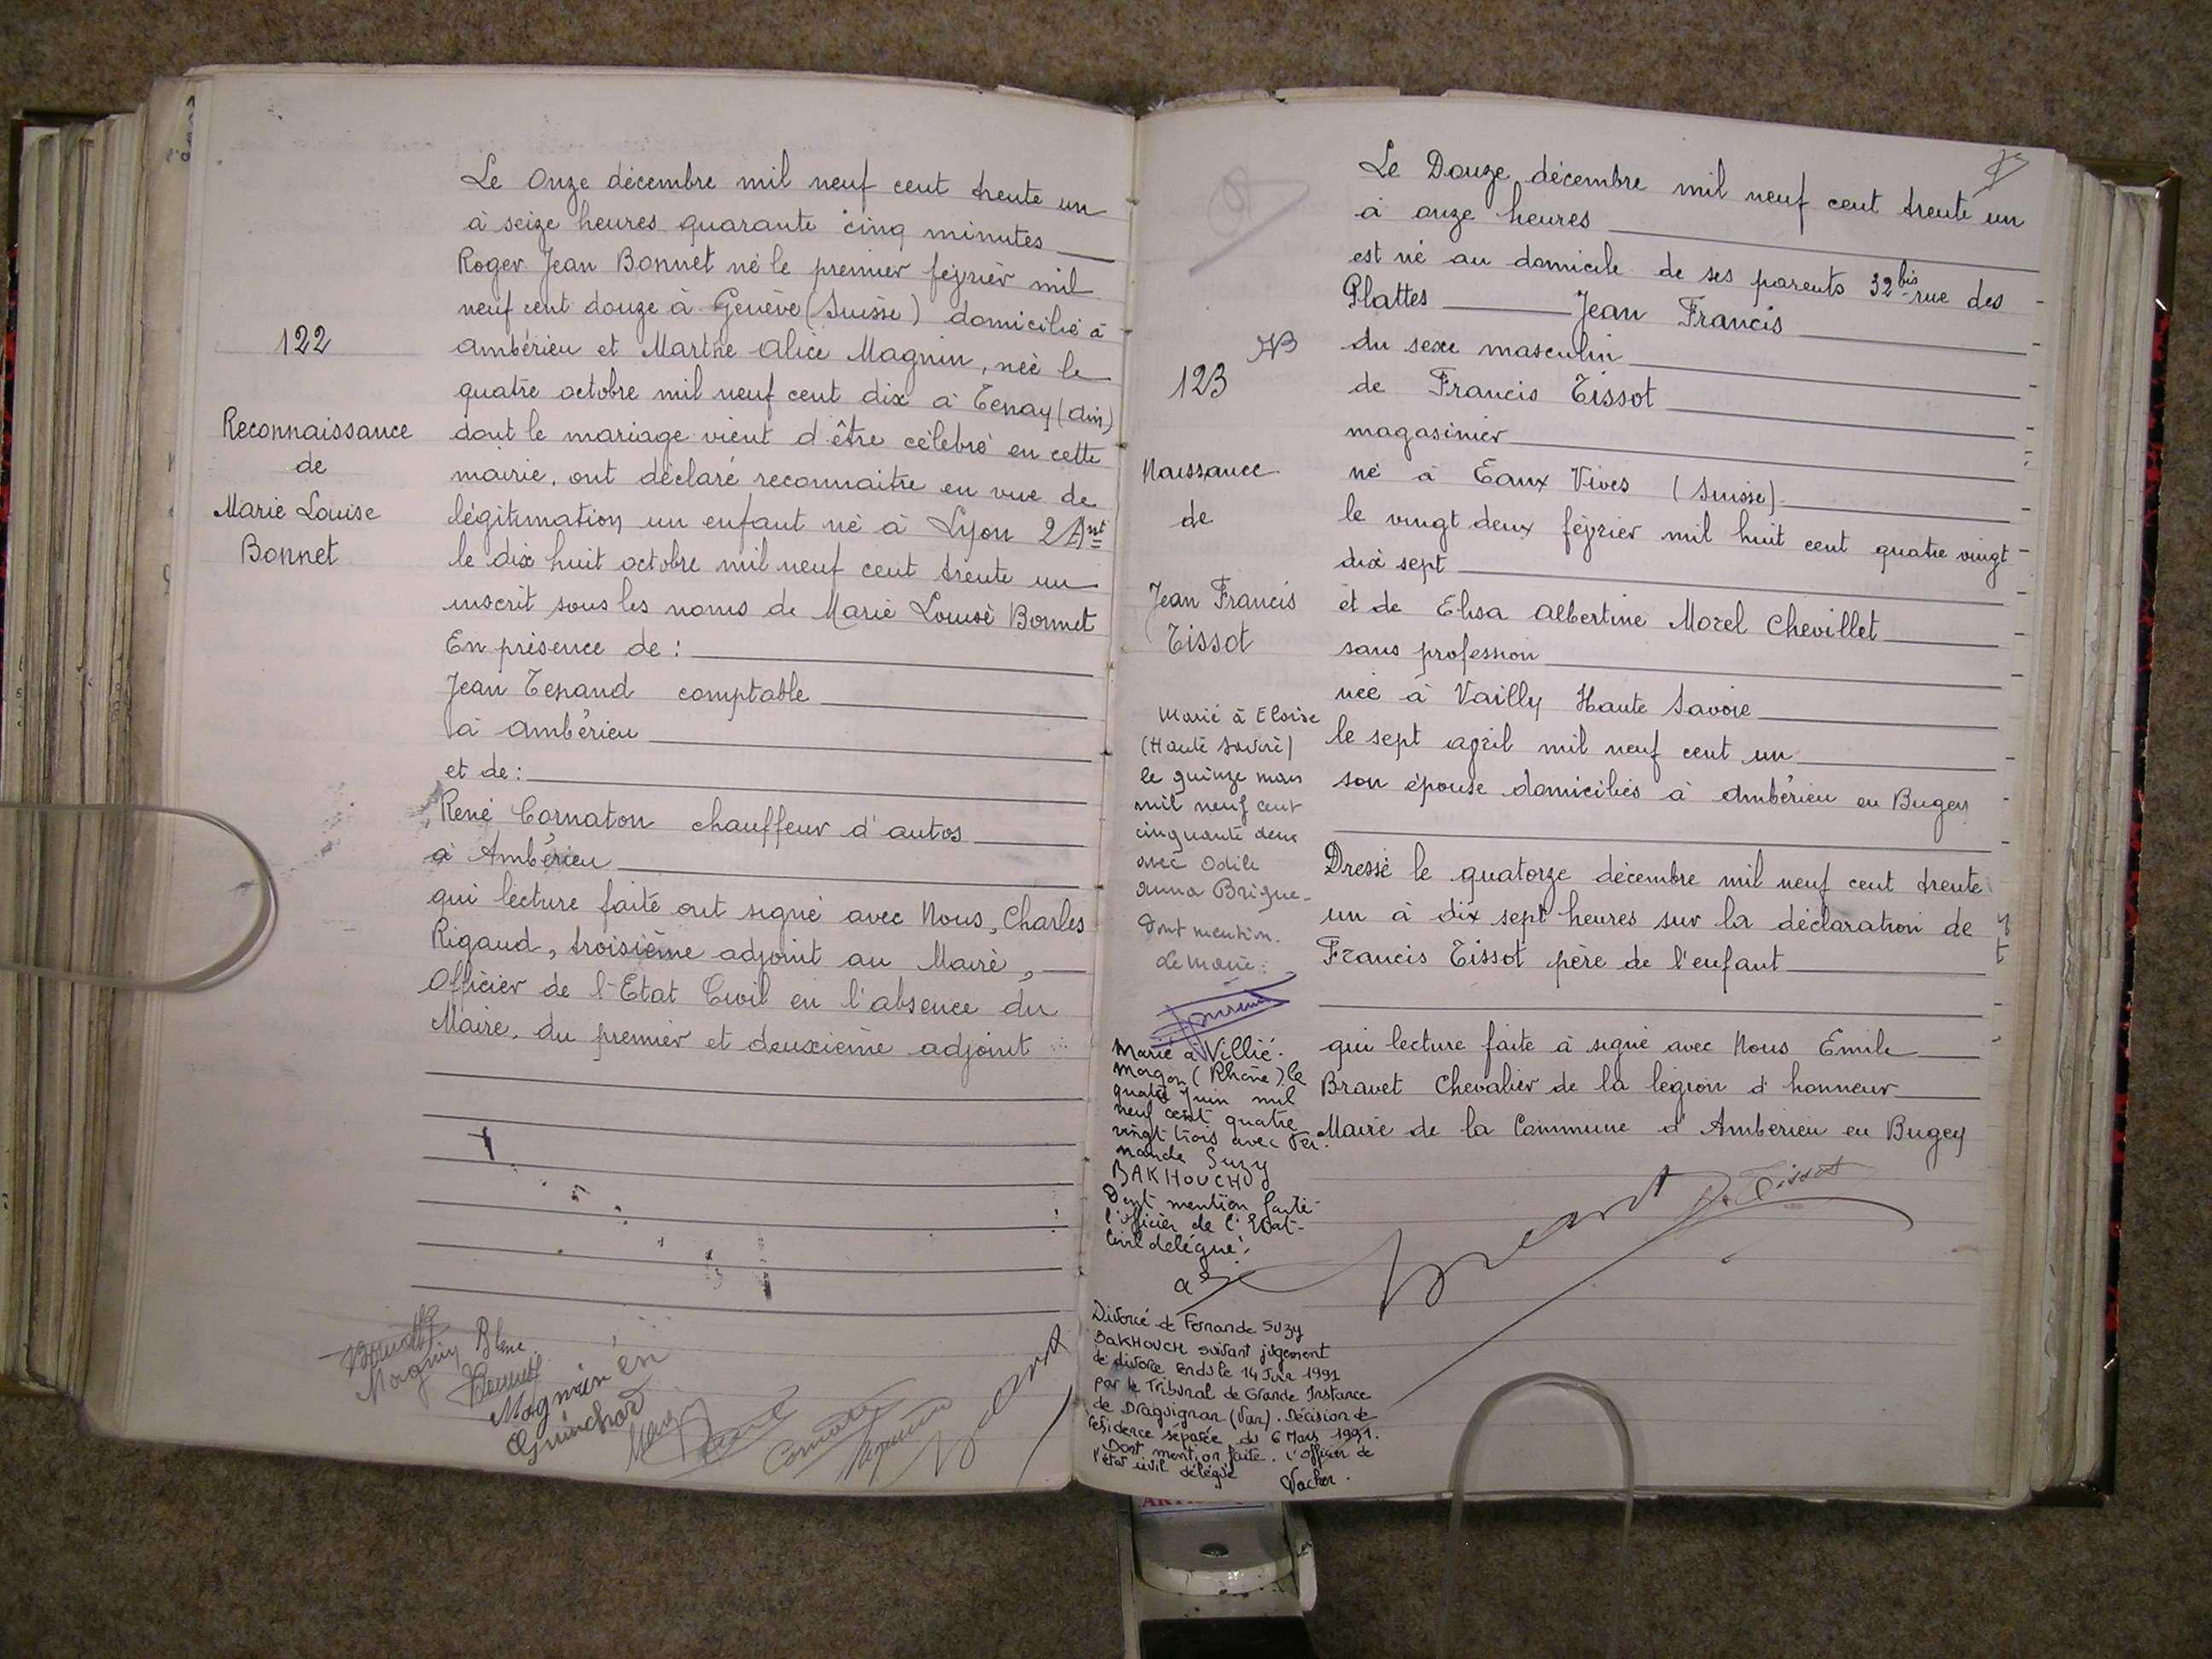 122
Reconnaissance
de
Marie Louise
Bonnet
Le Onze décembre mil neuf cent trente un
à seize heures quarante cinq minutes
Roger Jean Bonnet né le premier février mil
neuf cent douze à Genève (Suisse) domicilié à
Ambérieu et Marthe Alice Magnin, née le
quatre octobre mil neuf cent dix à Tenay (Ain)
dont le mariage vient d'être célébré en cette
mairie, ont déclaré reconnaitre en vue de
légitimation un enfant né à Lyon 2 Arnt
le dix huit octobre mil neuf cent trente un
inscrit sous les noms de Marie Louise Bonnet
En présence de :
Jean Tenand comptable
à Ambérieu
et de :
René Cornaton chauffeur d'autos
à Ambérieu
qui lecture faite ont signé avec Nous, Charles
Rigaud, troisième adjoint au Maire,
Officier de l'Etat Civil en l'absence du
Maire, du premier et deuxième adjoint
Magnin Blanc
123
Naissance
de
Jean Francis
Tissot
Marié à Eloise
(Haute Savoie)
le quinze mars
mil neuf cent
cinquante deux
avec Odile
Anna Brique.
Dont mention.
Le Maire :
Marié à Villié-
Morgon (Rhône) le
quatre Juin mil
neuf cent quatre
vingt trois avec Fer-
nande Suzy
BAKHOUCHE
Dont mention faite
l'officier de l'Etat-
Civil délégué.
Divorcé de Fernande Suzy
BAKHOUCH suivant jugement
de divorce rendu le 14 Juin 1991
par le Tribunal de Grande Instance
de Draguignan (Var). Décision de
résidence séparée du 6 Mars 1991.
Dont mention faite. L'Officier de
l'état civil délégué
Le Douze décembre mil neuf cent trente un
à onze heures
est né au domicile de ses parents 32 bis rue des
Plattes Jean Francis
du sexe masculin
de Francis Tissot
magasinier
né à Eaux Vives (Suisse)
le vingt deux février mil huit cent quatre vingt
dix sept
et de Elisa Albertine Morel Chevillet
sans profession
née à Vailly Haute Savoie
le sept avril mil neuf cent un
son épouse domiciliés à Ambérieu en Bugey
Dressé le quatorze décembre mil neuf cent trente
un à dix sept heures sur la déclaration de
Francis Tissot père de l'enfant
qui lecture faite à signé avec Nous Emile
Bravet Chevalier de la légion d'honneur
Maire de la Commune d'Ambérieu en Bugey
Tissot